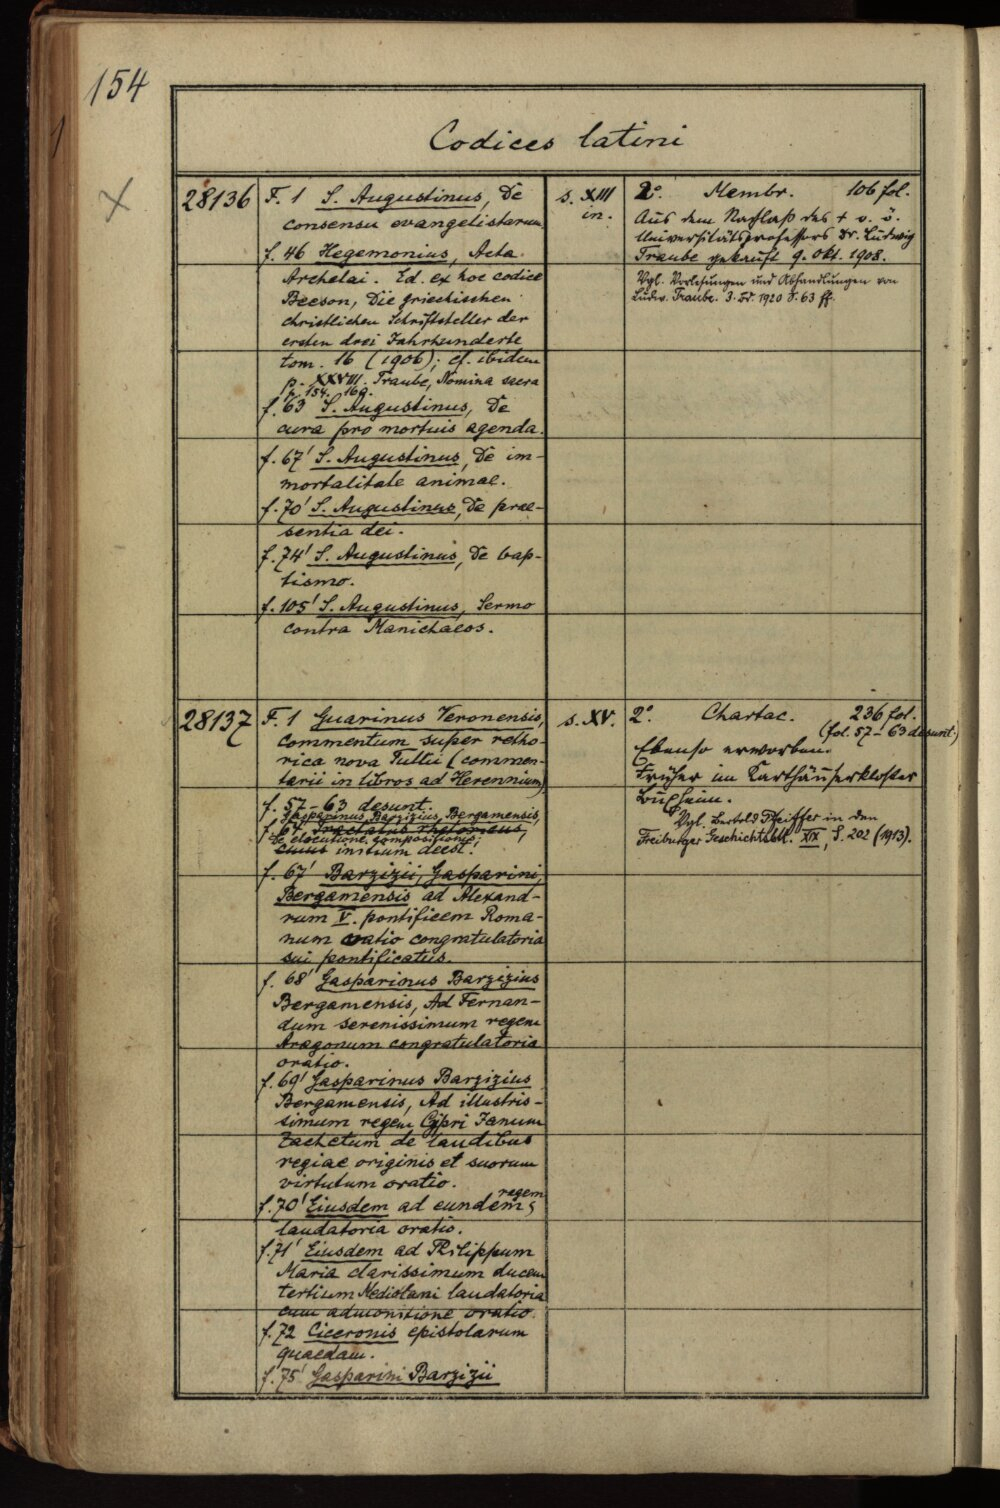 154
1
X
Codices latini
28136
F. 1 S. Augustinus, De
consensu evangelistarum.
f. 46 Hegemonius, Acta
Archelai. Ed. ex hoc codice
Beeson, Die griechischen
christlichen Schriftsteller der
ersten drei Jahrhunderte
tom. 16 (1906); cf. ibidem
p. XXVIII. Traube, Nomina sacra
p. 154. 169.
f. 63 S. Augustinus, De
cura pro mortuis agenda.
f. 67' S. Augustinus, De im-
mortalitate animae.
f. 70' S. Augustinus, De prae-
sentia dei.
f. 74' S. Augustinus, De bap-
tismo.
f. 105' S. Augustinus, Sermo
contra Manichaeos.
s. XIII
in.
2°. Membr. 106 fol.
Aus dem Nachlaß des + o. ö.
Universitätsprofessors Dr. Ludwig
Traube gekauft 9. Okt. 1908.
Vgl. Vorlesungen und Abhandlungen von
Ludw. Traube. 3. Bd. 1920 S. 63 ff.
28137
F. 1 Guarinus Veronensis,
commentum super retho-
rica nova Tullii (commen-
tarii in libros ad Herennium)
f. 57-63 desunt.
Gasparinus Barzizius Bergamensis,
f. 64, Tractatus rhetoricus,
De elocutione, compositione,
cuius initium deest.
f. 67' Barzizii, Gasparini,
Bergamensis ad Alexand-
rum V. pontificem Roma-
num oratio congratulatoria
sui pontificatus.
f. 68' Gasparinus Barzizius
Bergamensis, Ad Fernan-
dum serenissimum regem
Aragonum congratulatoria
oratio.
f. 69' Gasparinus Barzizius
Bergamensis, Ad illustris-
simum regem Cypri Janum
Zachetum de laudibus
regiae originis et suorum
virtutum oratio.
f. 70' Eiusdem ad eundem regem
laudatoria oratio.
f. 71' Eiusdem ad Philippum
Maria clarissimum ducem
tertium Mediolani laudatoria
cum admonitione oratio.
f. 72 Ciceronis epistolarum
quaedam.
f. 75' Gasparini Barzizii
s. XV.
2°. Chartac. 236 fol.
(fol. 57-63 desunt.)
Ebenso erworben.
Früher im Karthäuserkloster
Buxheim.
Vgl. Bertold Pfeiffer in den
Freiburger Geschichtsbll. XIX, S. 202 (1913).